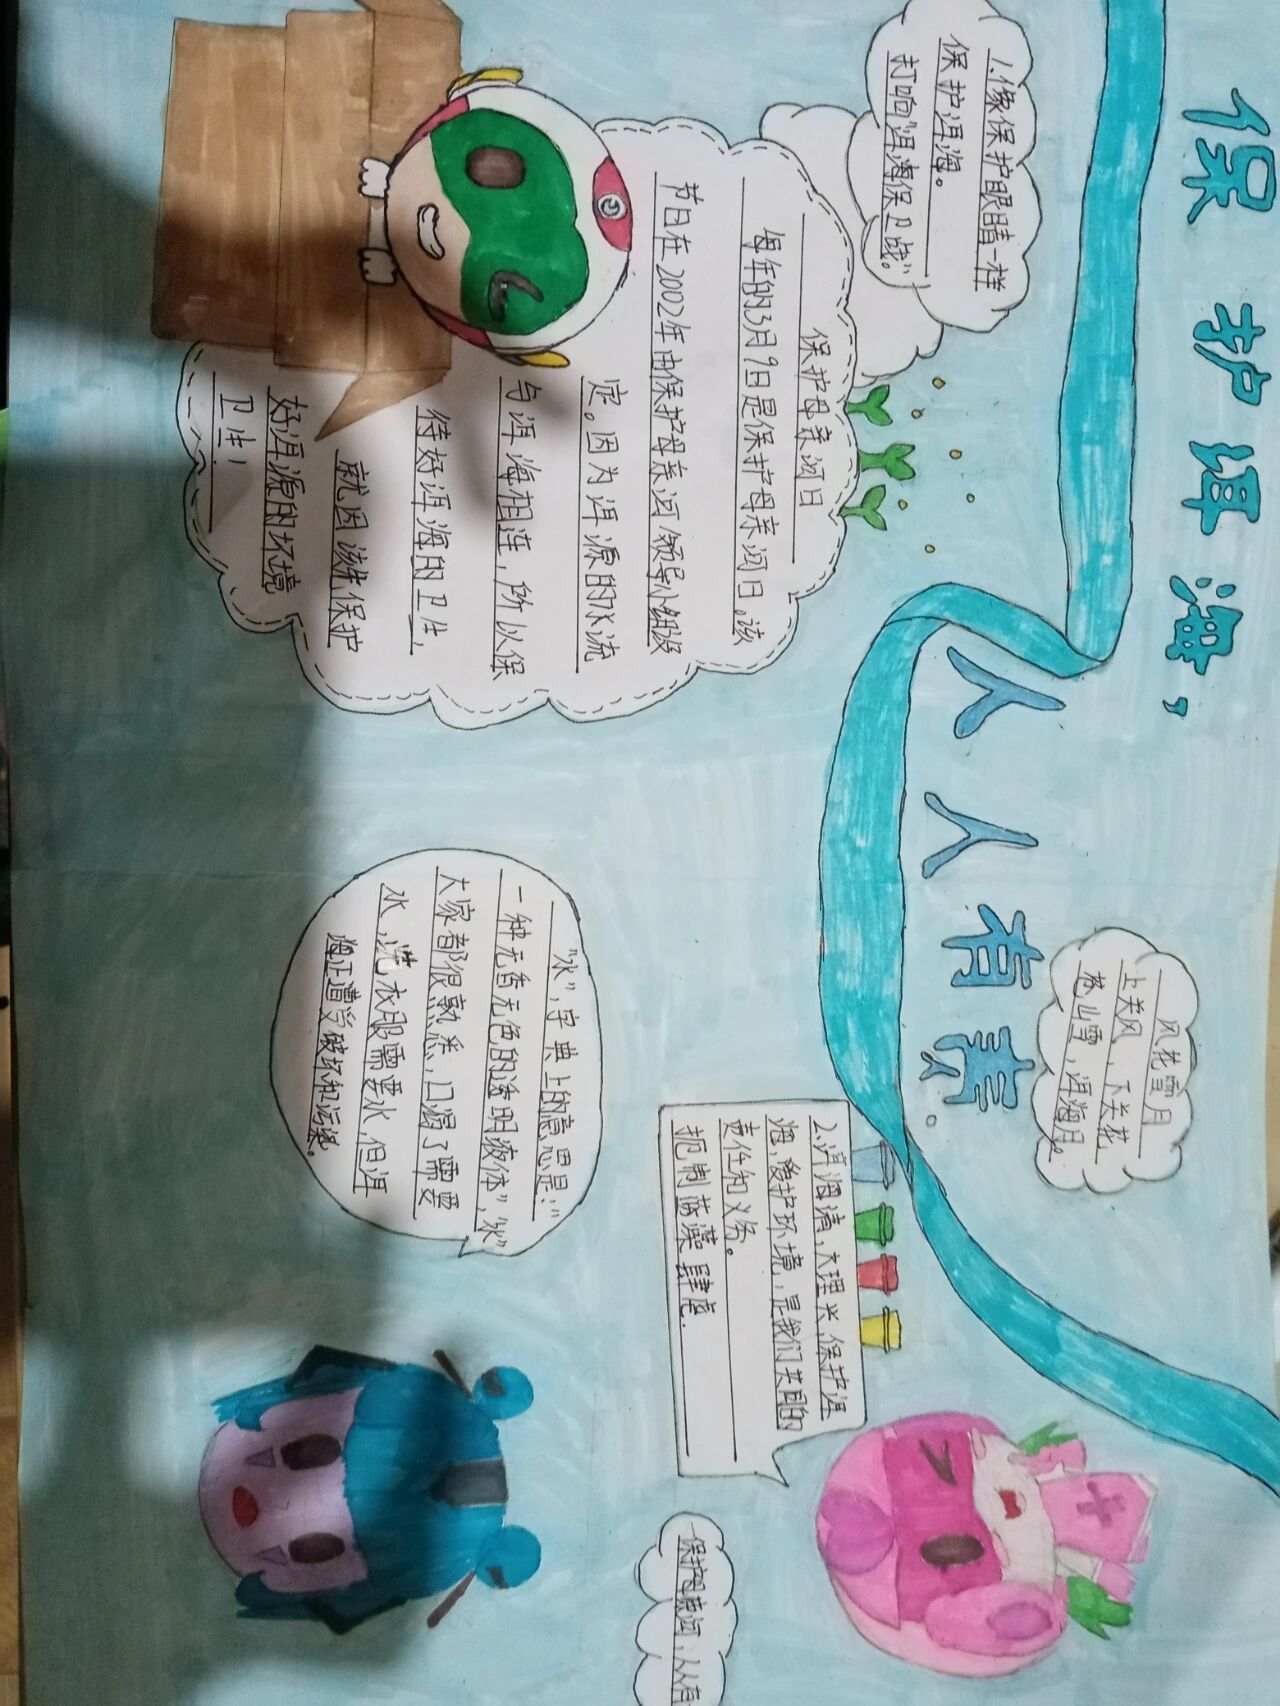 保护洱海,
人人有责
1.像保护眼睛一样
保护洱海。
打响“洱海保卫战。”
保护母亲河日
每年的3月9日是保护母亲河日。该
节日在2002年由保护母亲河领导小组设
定。因为洱源的水流
与洱海相连，所以保
待好洱海的卫生，
就因该先保护
好洱源的环境
卫生！
风花雪月
上关风，下关花，
苍山雪，洱海月。
2.洱海清，大理兴，保护洱
海，爱护环境，是我们共同的
责任和义务。
扼制蓝藻肆虐.
“水”，字典上的意思是：“
一种无香无色的透明液体”，“水”
大家都很熟悉，口渴了需要
水，洗衣服需要水 但洱
海正遭受破坏和污染。
保护母亲河，人人有